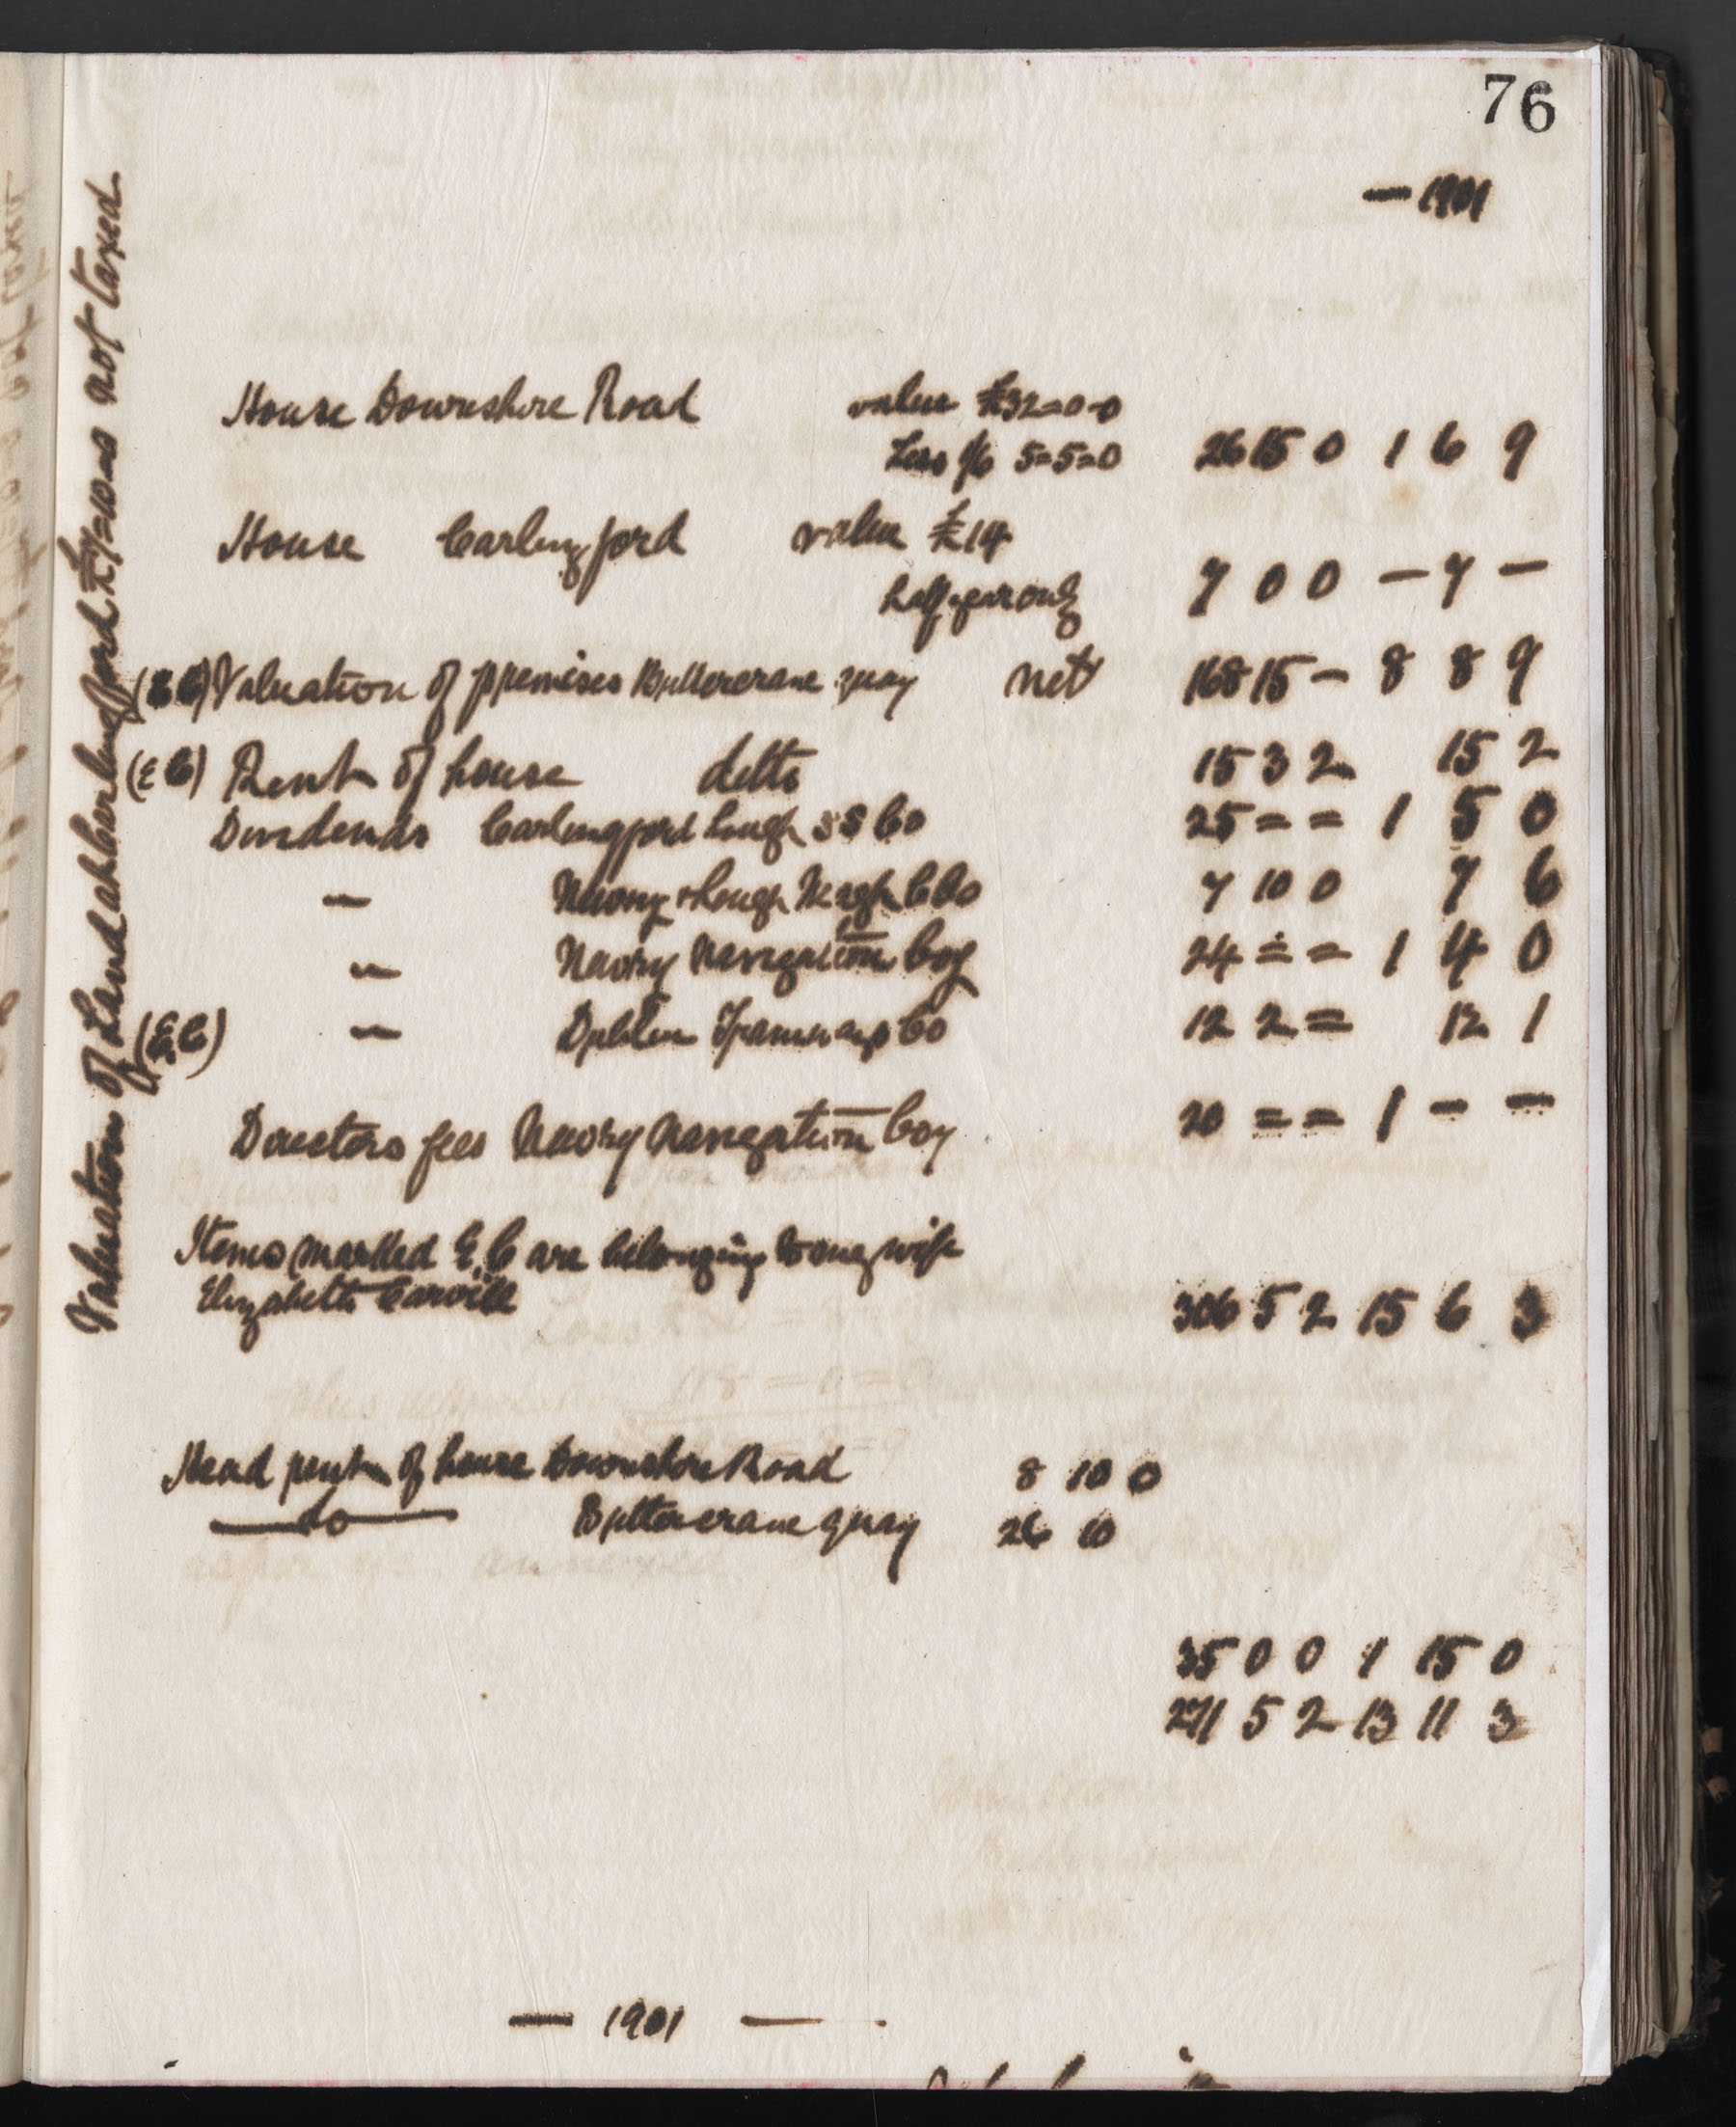 76
— 1901
Valuation of Land at Carlingford £7=10=0 not taxed
House Downshire Road value £32=0-0
Less 1/6 5=5=0 26 15 0 1 6 9
House Carlingford value £14
half year only 7 0 0 — 7 —
(E C) Valuation of premises Buttercrane quay net 168 15 – 8 8 9
(E C) Rent of house ditto 15 3 2 15 2
Dividends Carlingford Lough S S Co 25 = = 1 5 0
— Newry & Lough Neagh C Co 7 10 0 7 6
— Newry Navigation Coy 24 = = 1 4 0
(E.C) — Dublin Tramways Co 12 2 = 12 1
Directors fees Newry Navigation Coy 20 = = 1 – –
Items marked E.C are belonging to my wife
Elizabeth Carvill 306 5 2 15 6 3
Head rent of house Downshire Road 8 10 0
— do — Buttercrane quay 26 10
35 0 0 1 15 0
271 5 2 13 11 3
— 1901 —